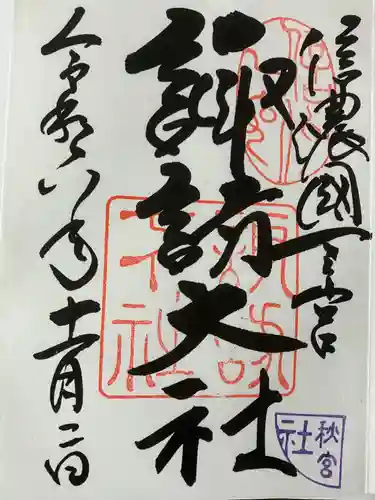 信濃國一之宮
諏訪大社
令和六年十一月二日
諏訪大社
秋宮
社